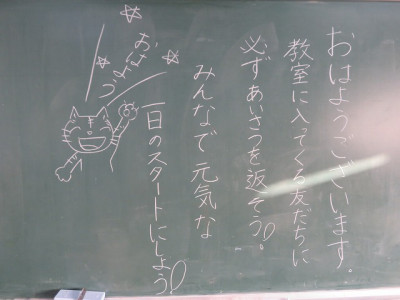 おはようございます。
教室に入ってくる友だちに
必ずあいさつを返そう!
みんなで元気な
一日のスタートにしよう!
おはよう